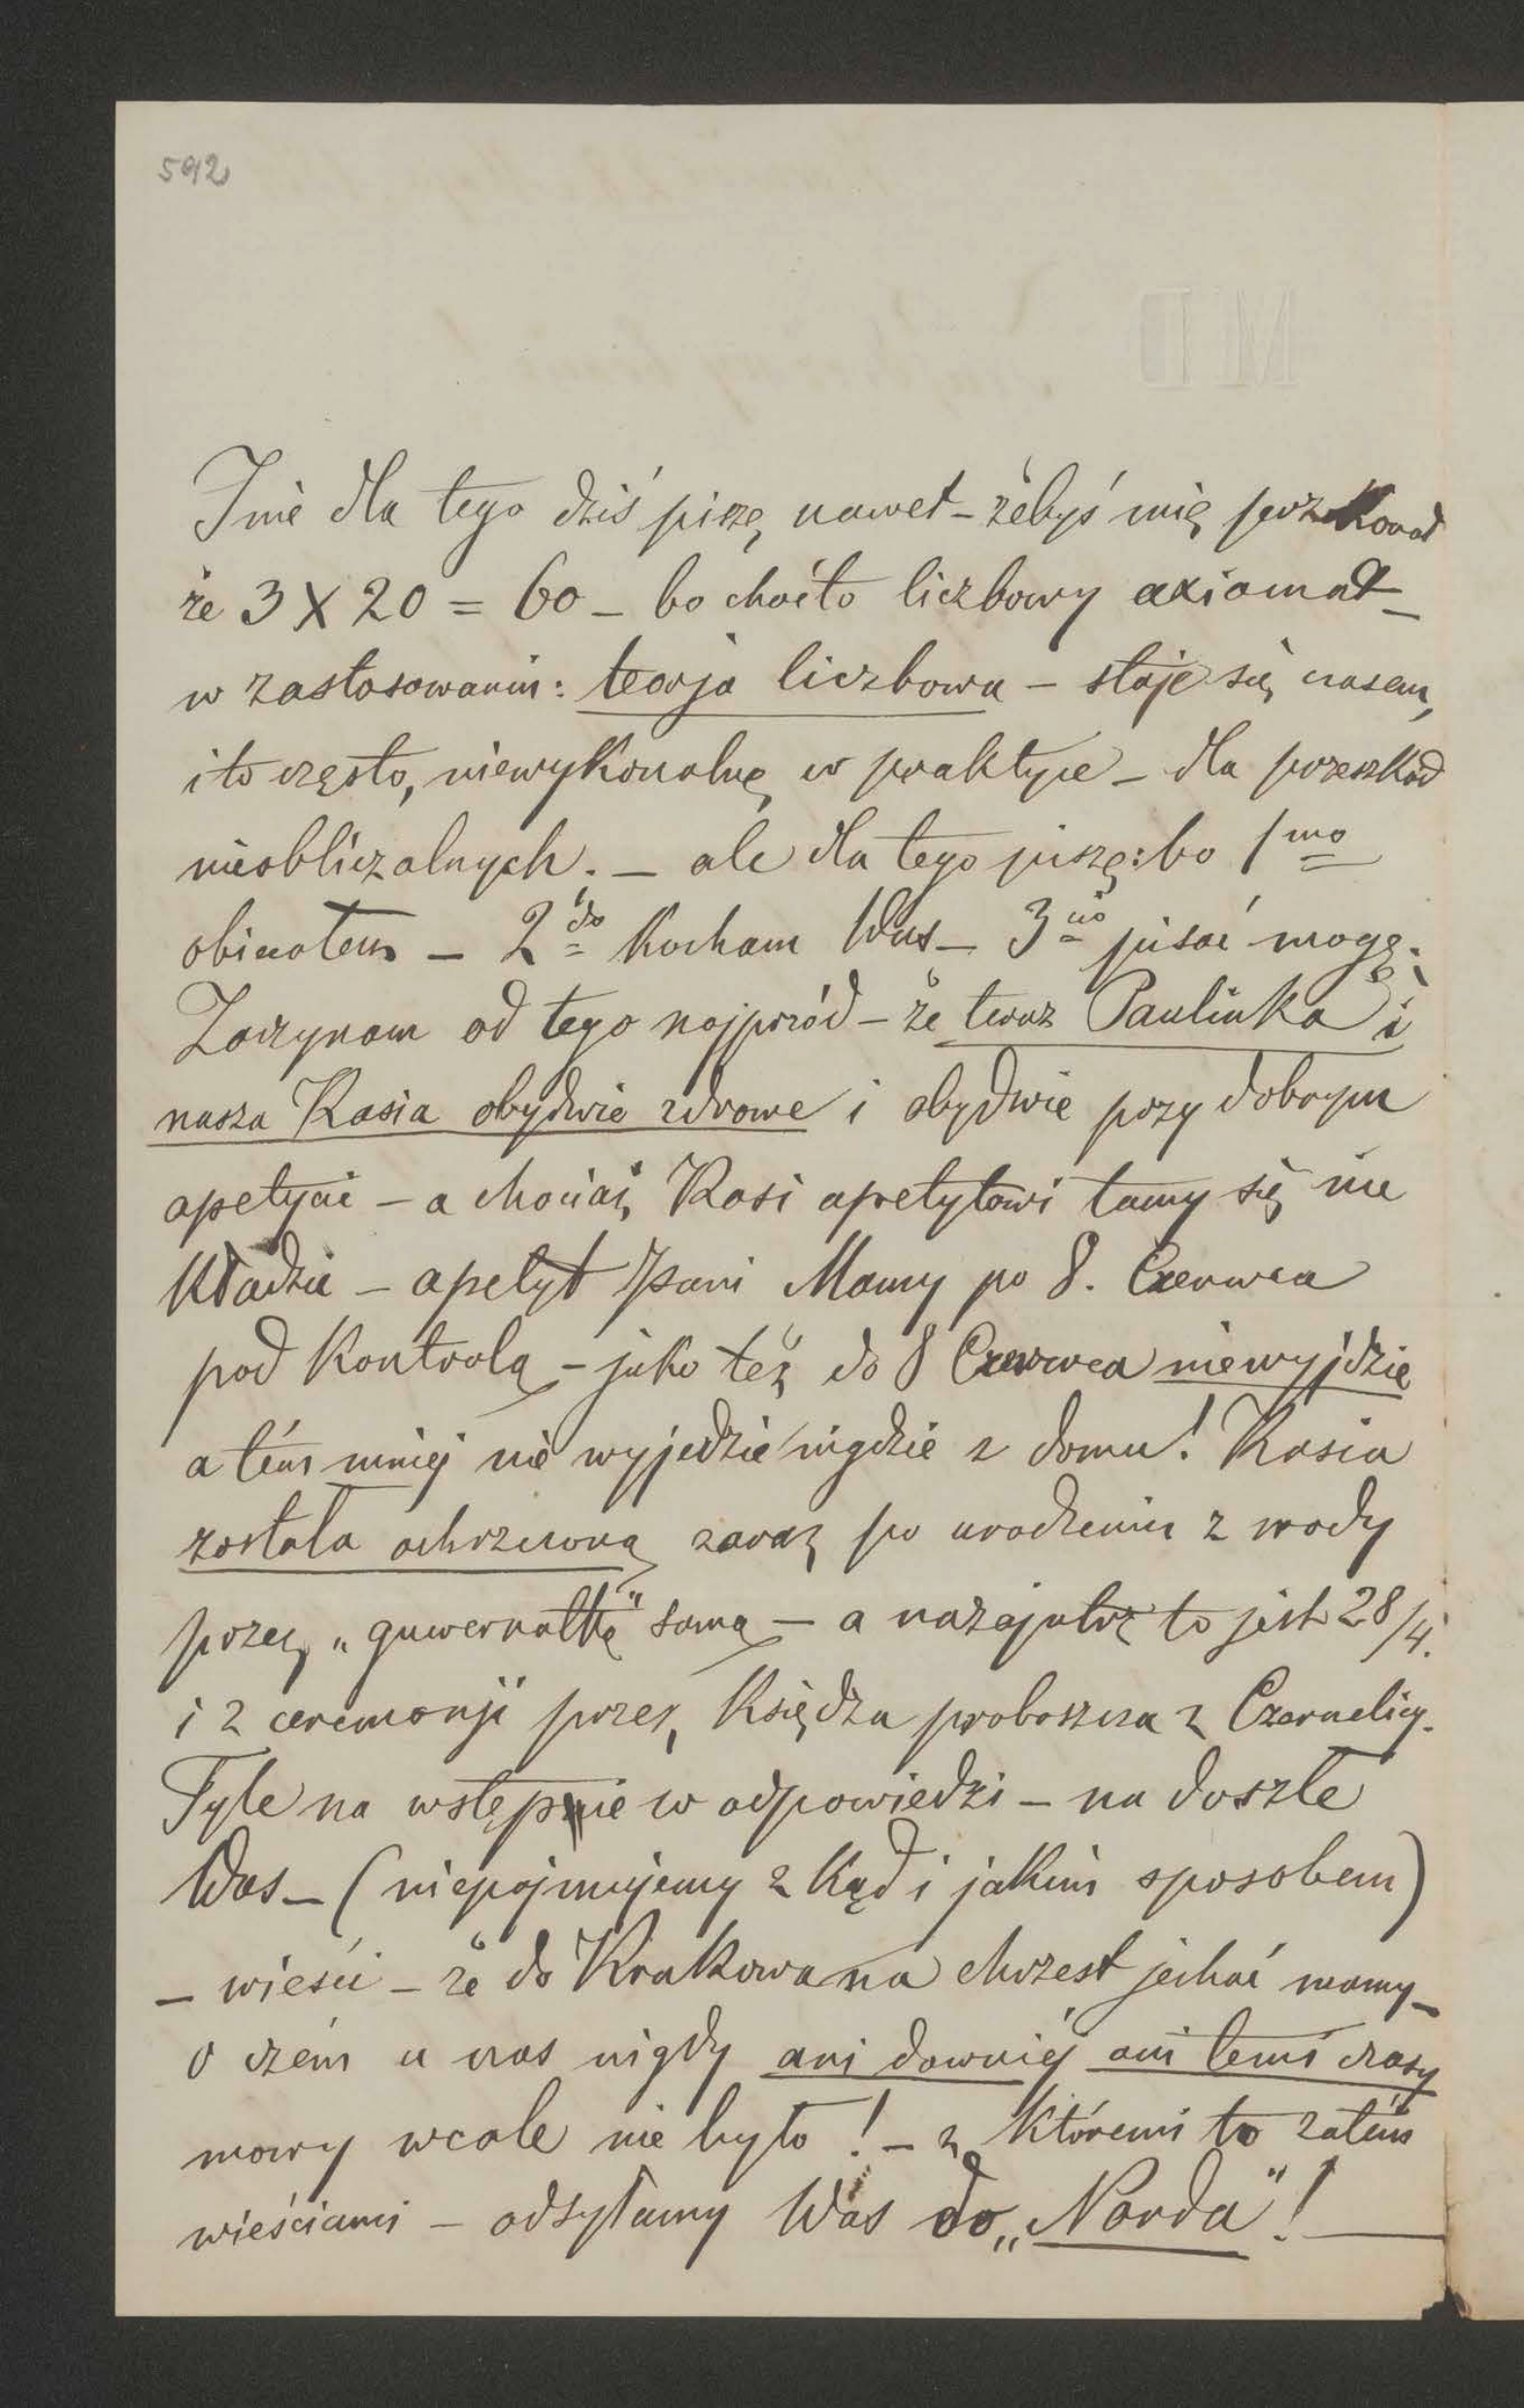 592
MD
I nie dla tego dziś piszę, nawet – żebyś mię przekonał
że 3 X 20 = 60 – bo choć to liczbowy axiomat –
w zastosowaniu: teorja liczbowa – staje się czasem,
i to często, niewykonalną w praktyce – dla przeszkód
nieobliczalnych. – ale dla tego piszę: bo 1mo
obiecałem – 2do Kocham Was – 3tio pisać mogę.
Zaczynam od tego najprzód – że teraz Paulinka i
nasza Kasia obydwie zdrowe i obydwie przy dobrym
apetycie – a chociaż Kasi apetytowi tamy się nie
Kładzie – apetyt Pani Mamy po 8. Czerwca
pod Kontrolą – jako też do 8 Czerwca niewyjdzie
a tém mniej nie wyjedzie nigdzie z domu! Kasia
została ochrzczoną zaraz po urodzeniu z wody
przez „guwernatkę" samą – a nazajutrz to jest 28/4.
i z ceremonji przez Księdza proboszcza z Czernelicy.
Tyle na wstępie w odpowiedzi – na doszłe
Was – (niepojmujemy z kąd i jakim sposobem)
– wieści – że do Krakowa na chrzest jechać mamy –
o czém u nas nigdy ani dawniéj ani temi czasy
mowy wcale nie było! – z któremi to zatém
wieściami – odsyłamy Was do „Norda"! —